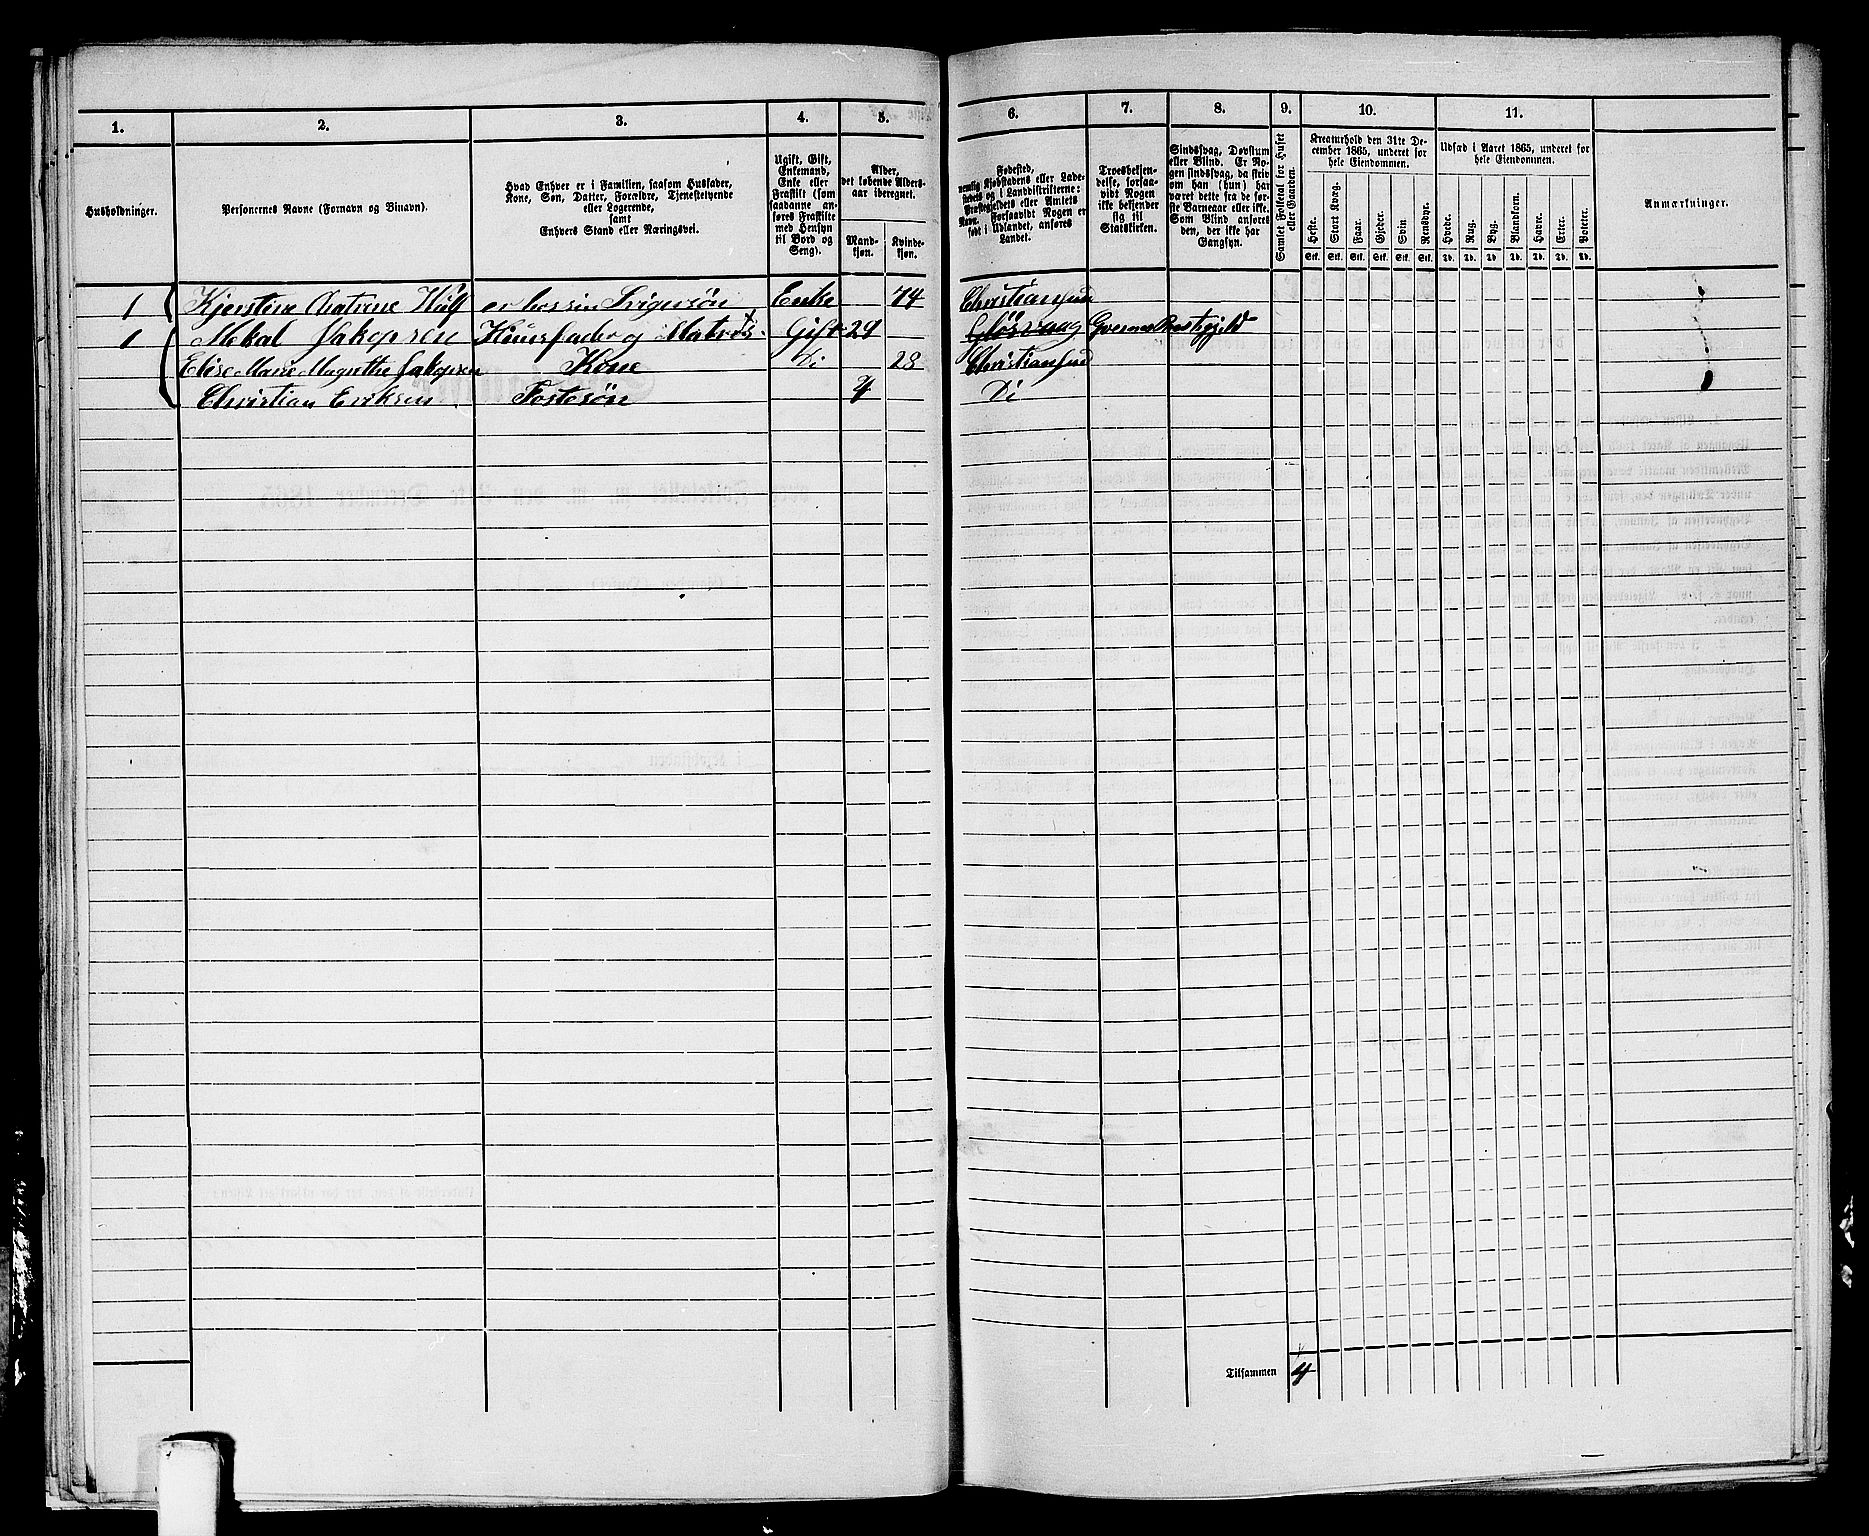 1. 2. 3. 4. 5. 6. 7. 8. 9. 10. 11.
Husholdninger.
Personernes Navne (Fornavn og Binavn).
Hvad Enhver er i Familien, saasom Husfader,
Kone, Søn, Datter, Forældre, Tjenestetyende
eller Logerende,
samt
Enhvers Stand eller Næringsvei.
Ugift, Gift,
Enkemand,
Enke eller
Fraskilt (som
saadanne an-
føres Fraskilte
med Hensyn
til Bord og
Seng).
Alder,
det løbende Alders-
aar iberegnet.
Mand-
kjøn.
Kvinde-
kjøn.
Fødested,
nemlig Kjøbstadens eller Lade-
stedets og i Landdistrikterne:
Præstegjeldets eller Amtets
Navn. Forsaavidt Nogen er
født i Udlandet, anføres
Landet.
Troesbekjen-
delse, forsaa-
vidt Nogen
ikke bekjender
sig til
Statskirken.
Sindssvag, Døvstum
eller Blind. Er No-
gen sindssvag, da skriv
om han (hun) har
været dette fra de før-
ste Barneaar eller ikke.
Som Blind anføres
den, der ikke har
Gangsyn.
Samlet Folketal for Huset
eller Gaarden.
Kreaturhold den 31te De-
cember 1865, underet for
hele Eiendommen.
Heste. Stort Kvæg. Faar. Gjeder. Svin Rensdyr.
Stk. Stk. Stk. Stk. Stk. Stk.
Udsæd i Aaret 1865, underet for
hele Eiendommen.
Hvede. Rug. Byg. Blandkorn. Havre. Erter. Poteter.
Td. Td. Td. Td. Td. Td. Td.
Anmærkninger.
1 Kjerstine Catrine Wulf er hos sin Svigersøn Enke 74 Christiansund
1 Mekal Jakopsen Huusfader og Matros Gift 29
Elise Marie Magrethe Jakopsen Kone Di 28 Christiansund
Christian Eriksen Fostersøn 4 Di
Tilsammen 4